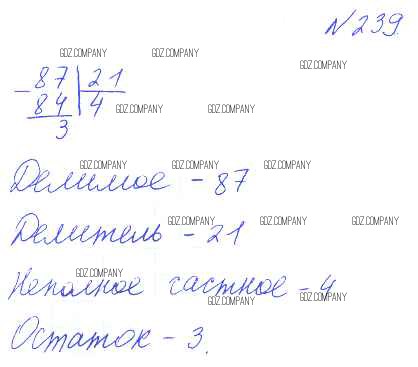 N 239.
GDZ.COMPANY GDZ.COMPANY GDZ.COMPANY
- 87 | 21
84 | 4 GDZ.COMPANY GDZ.COMPANY
3
GDZ.COMPANY GDZ.COMPANY GDZ.COMPANY
Делимое - 87
GDZ.COMPANY GDZ.COMPANY GDZ.COMPANY
Делитель - 21
GDZ.COMPANY
Неполное частное - 4
GDZ.COMPANY GDZ.COMPANY
Остаток - 3.